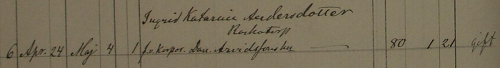 Ingrid Katarina Andersdotter
6 Apr. 24 Maj 4 1 f. korpor. Dan. Arvidsson 80 1 21 Gift